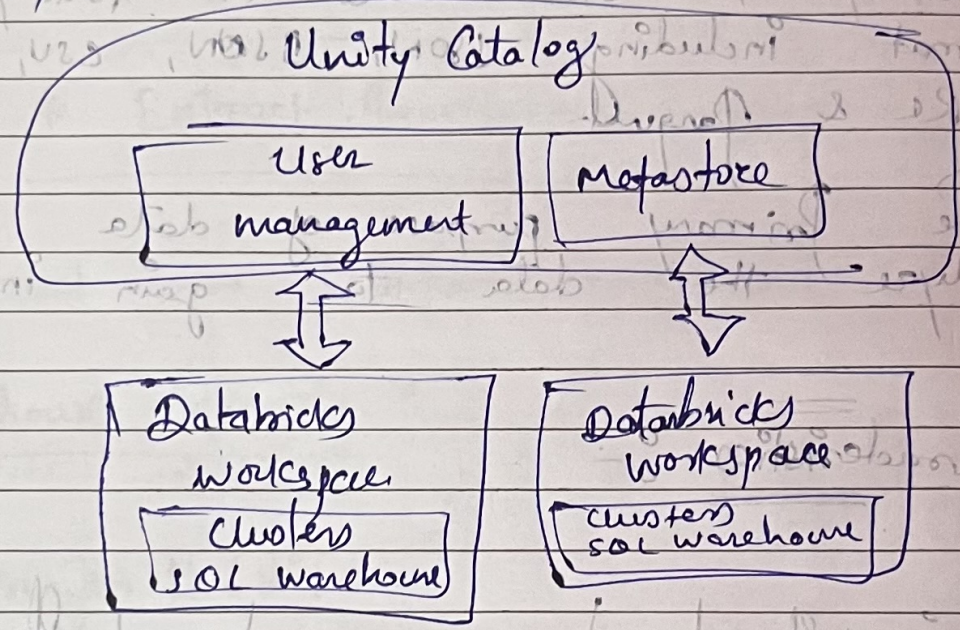 Unity Catalog
User
management
Metastore
Databricks
workspace
Clusters
SQL warehouse
Databricks
workspace
clusters
SQL warehouse